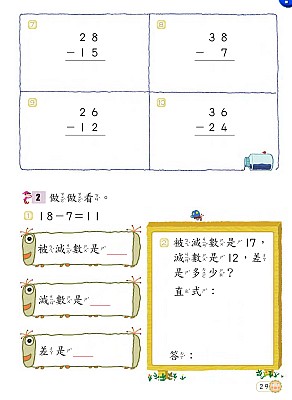 ⑦
28
－15
⑧
38
－ 7
⑨
26
－12
⑩
36
－24
2 做做看。
① 18－7＝11
被減數是
減數是
差是
② 被減數是17，
減數是12，差
是多少？
直式：
答：
29